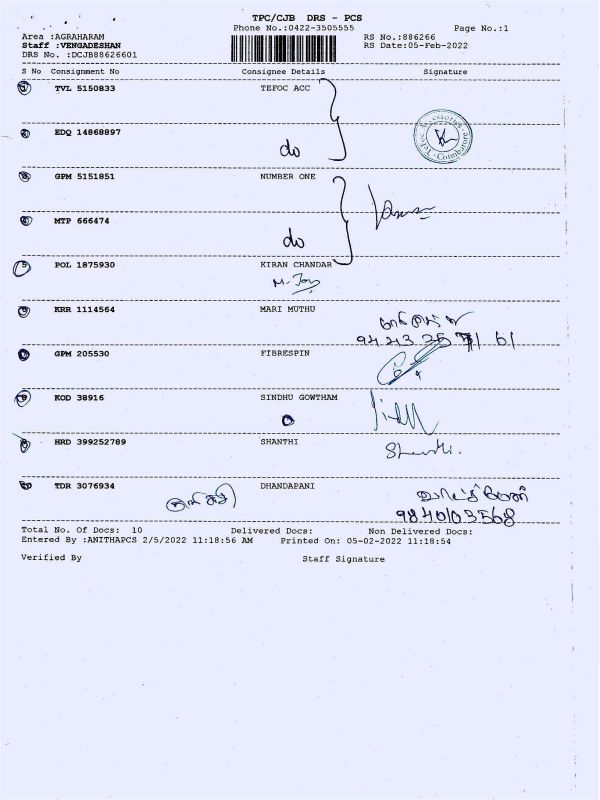 TPC/CJB DRS - PCS
Phone No.:0422-3505555
Page No.:1
Area :AGRAHARAM
RS No.:886266
Staff :VENGADESHAN
RS Date:05-Feb-2022
DRS No. :DCJB88626601
S No Consignment No Consignee Details Signature
1 TVL 5150833 TEFOC ACC
2 EDQ 14868897
do
Tefoc Accessories Coimbatore
3 GPM 5151851 NUMBER ONE
4 MTP 666474
do
5 POL 1875930 KIRAN CHANDAR
KRR 1114564 MARI MUTHU
GPM 205530 FIBRESPIN
KOD 38916 SINDHU GOWTHAM
HRD 399252789 SHANTHI
Shanthi.
TDR 3076934 DHANDAPANI
9840103568
Total No. Of Docs: 10 Delivered Docs: Non Delivered Docs:
Entered By :ANITHAPCS 2/5/2022 11:18:56 AM Printed On: 05-02-2022 11:18:54
Verified By Staff Signature